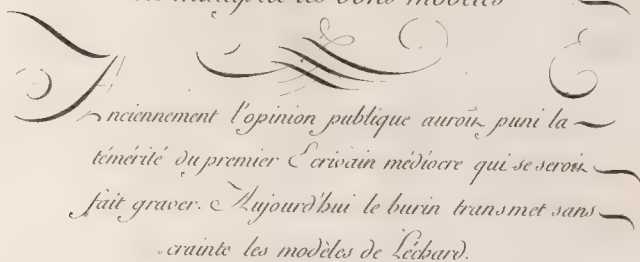 multiplié les bons modèles
Anciennement l'opinion publique auroit puni la
témérité du premier Ecrivain médiocre qui se seroit
fait graver. Aujourd'hui le burin transmet sans
crainte les modèles de Léchard.